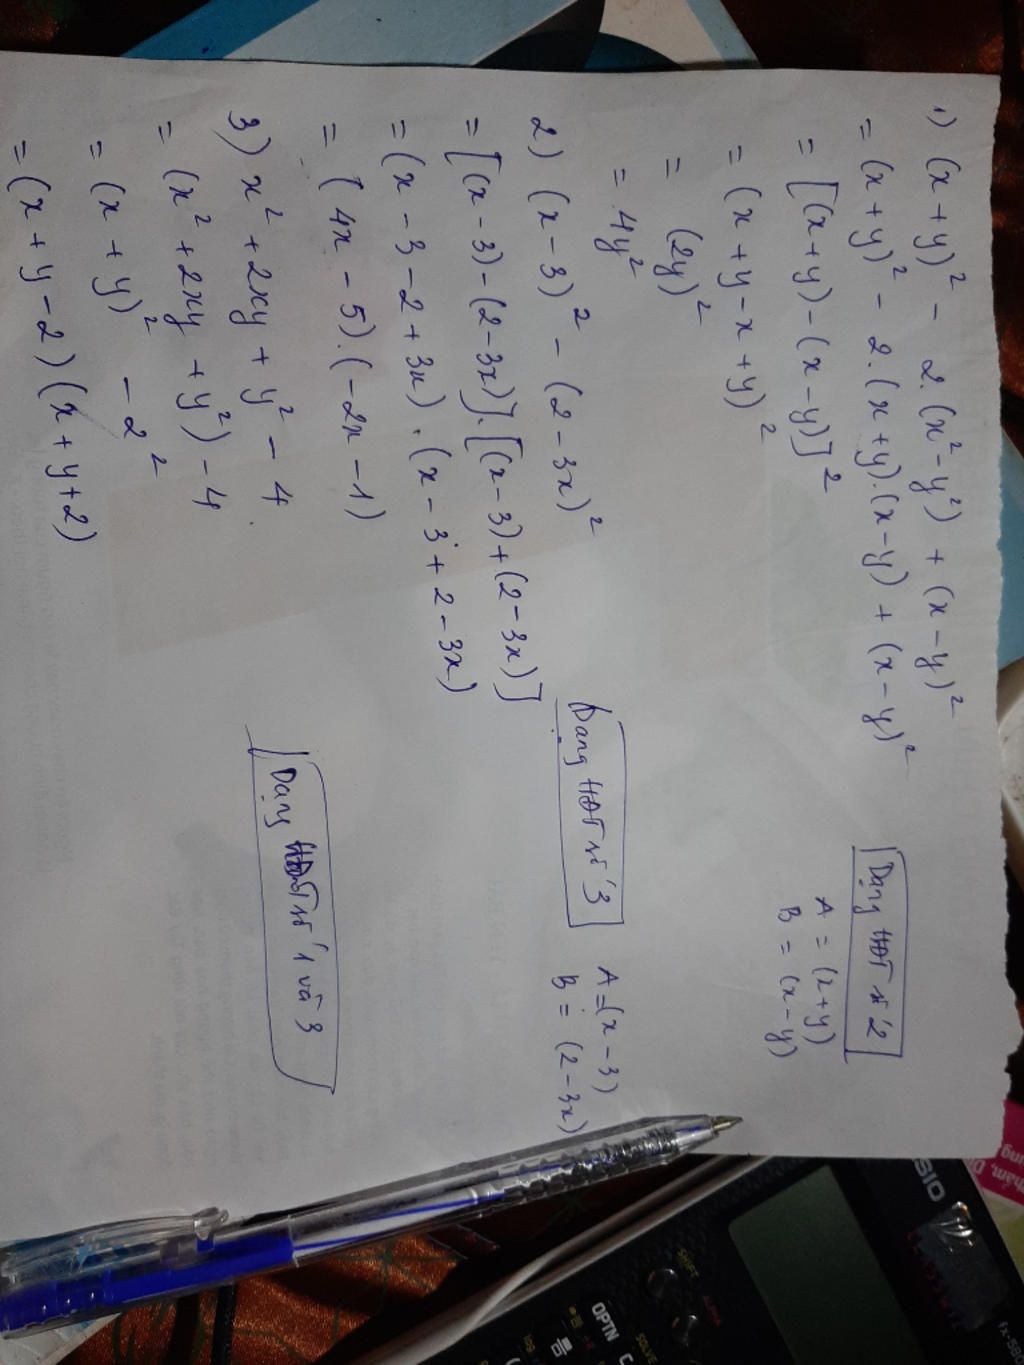 1) (x+y)² - 2.(x²-y²) + (x-y)²
= (x+y)² - 2.(x+y).(x-y) + (x-y)²
= [(x+y)-(x-y)]²
= (x+y-x+y)²
= (2y)²
= 4y²
Dạng HĐT số 2
A = (x+y)
B = (x-y)
2) (x-3)² - (2-3x)²
= [(x-3)-(2-3x)].[(x-3)+(2-3x)]
= (x-3-2+3x).(x-3+2-3x)
= (4x-5).(-2x-1)
Dạng HĐT số 3
A=(x-3)
B = (2-3x)
3) x²+2xy+y²-4
= (x²+2xy+y²)-4
= (x+y)² - 2²
= (x+y-2)(x+y+2)
Dạng HĐT số 1 và 3
SIO
SHIFT
ALPHA
OPTN
SOLVE